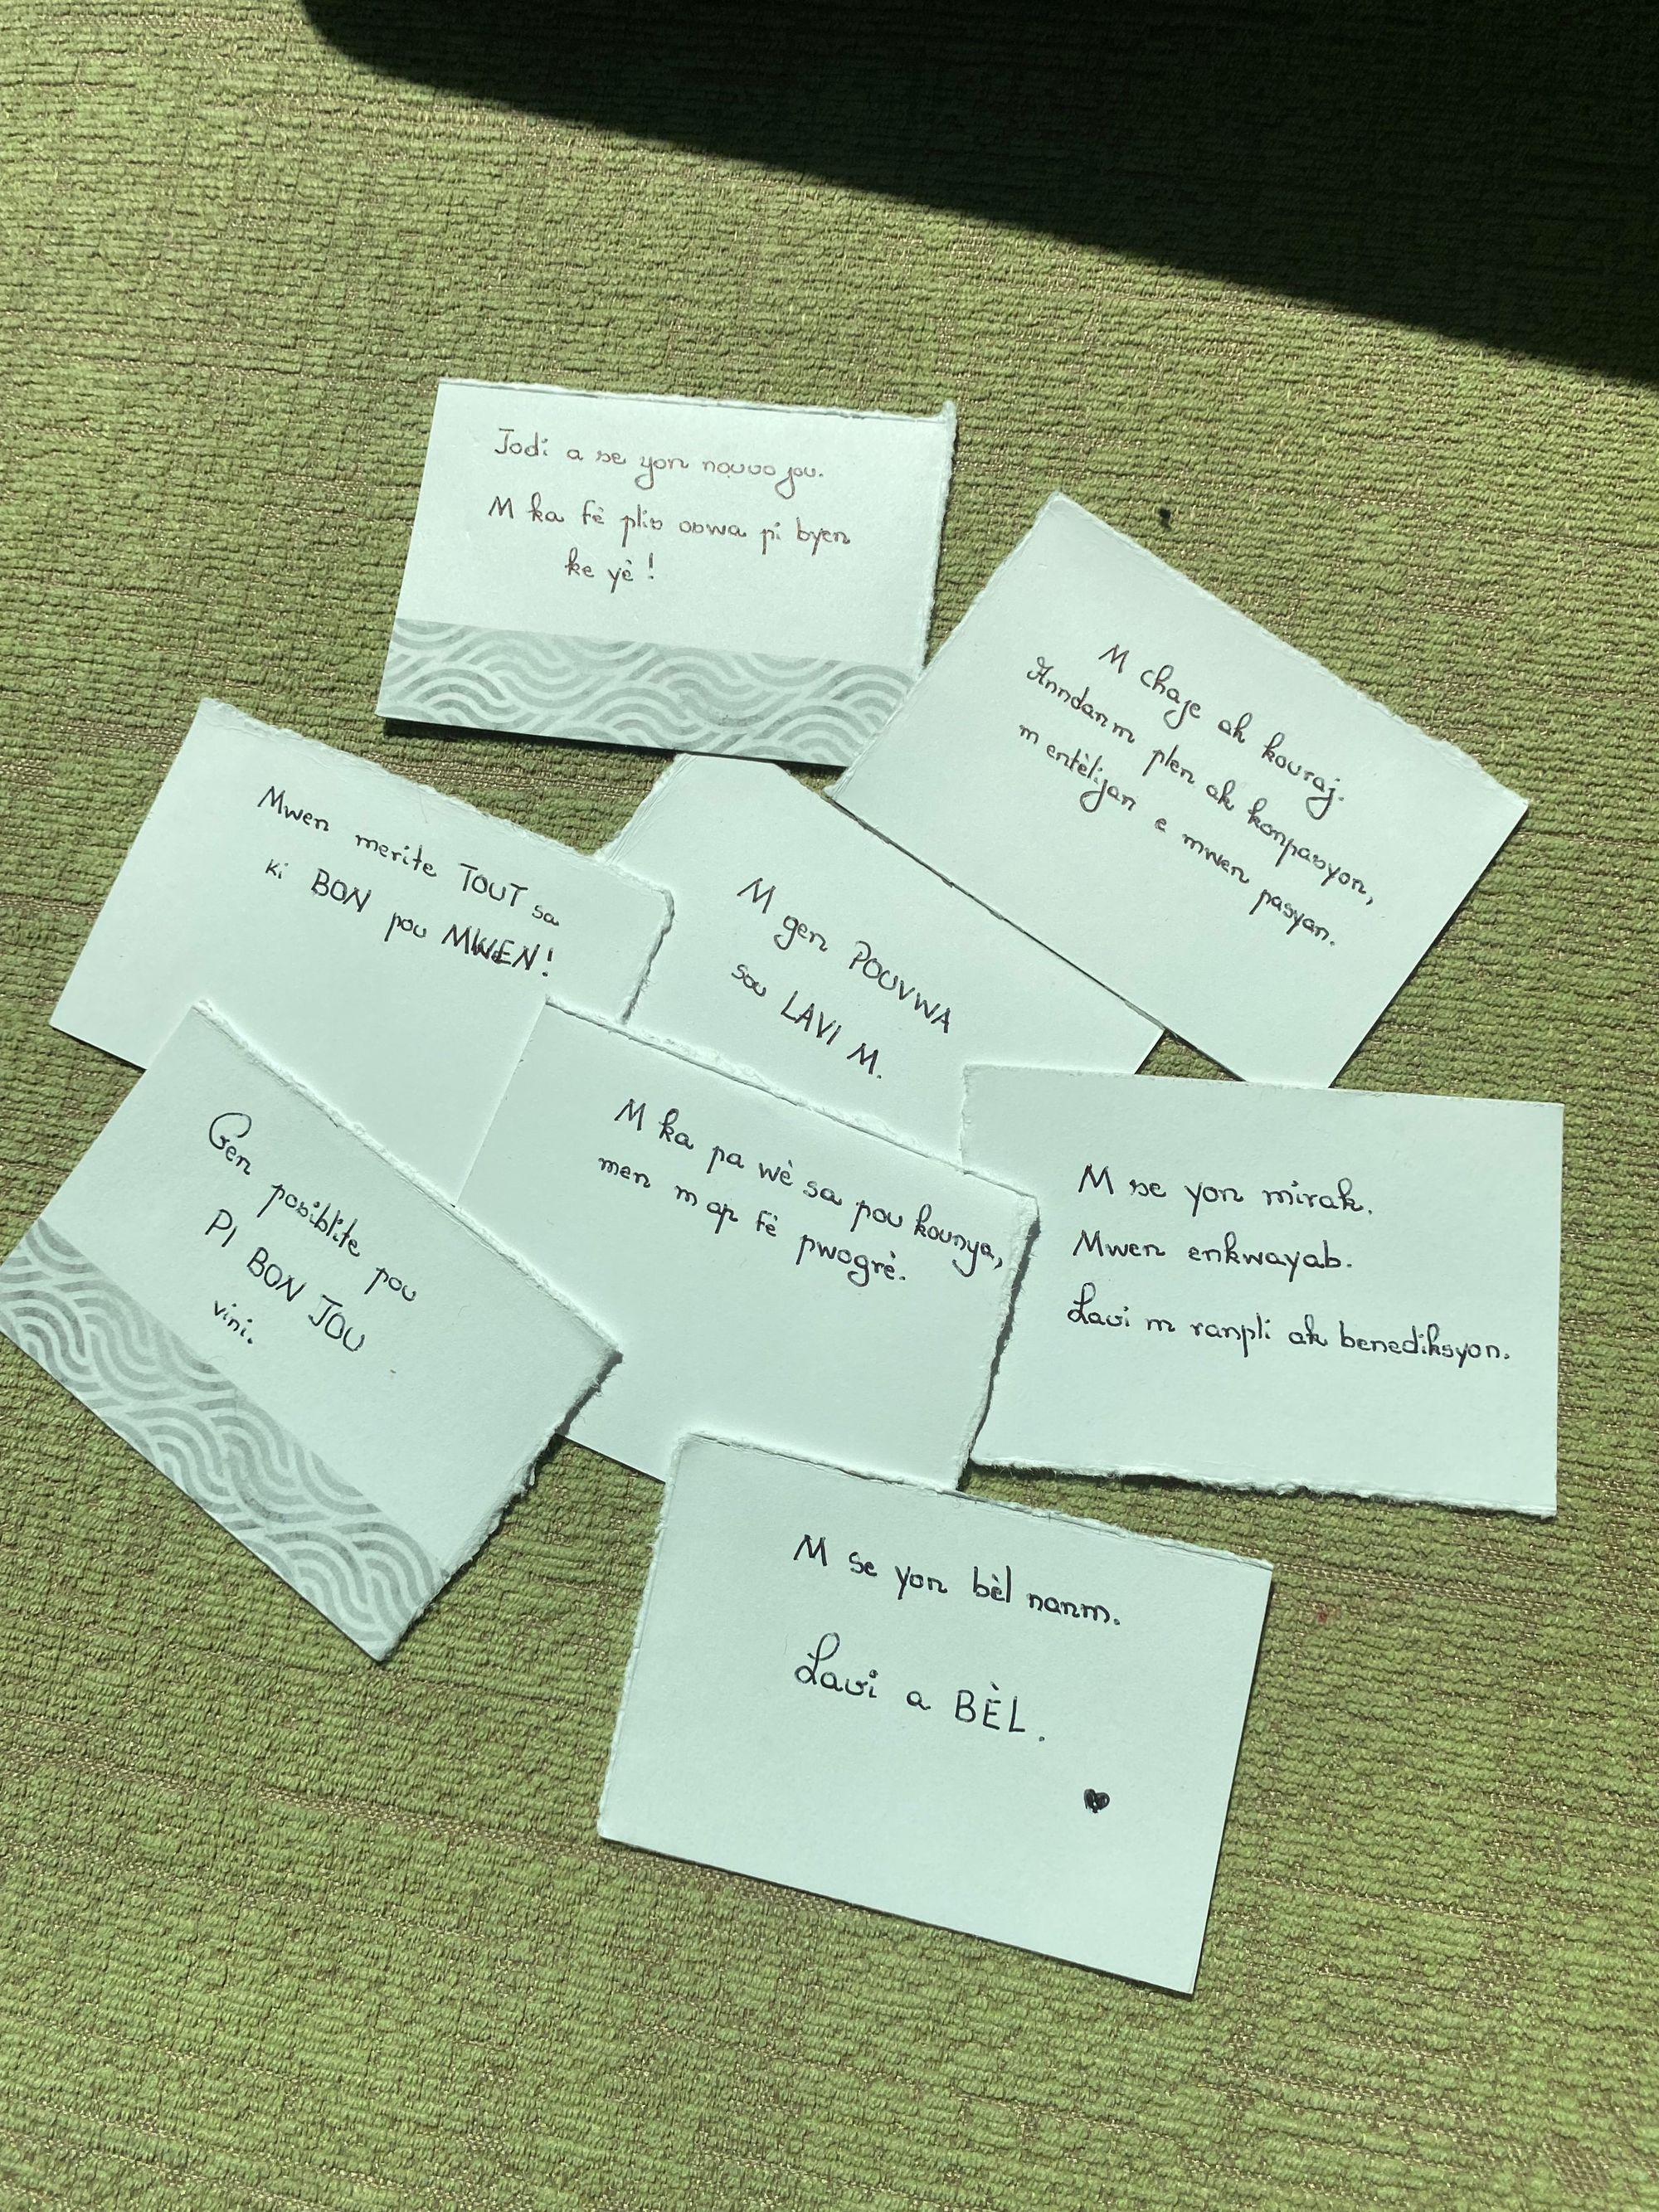 Jodi a se yon nouvo jou.
M ka fè plis oswa pi byen
ke yè!
M chaje ak kouraj.
Anndan m plen ak konpasyon,
m entèlijan e mwen pasyan.
Mwen merite TOUT sa
ki BON pou MWEN!
M gen POUVWA
sou LAVI M.
Gen posiblite pou
PI BON JOU
vini.
M ka pa wè sa pou kounya,
men m ap fè pwogrè.
M se yon mirak.
Mwen enkwayab.
Lavi m ranpli ak benediksyon.
M se yon bèl nanm.
Lavi a BÈL.